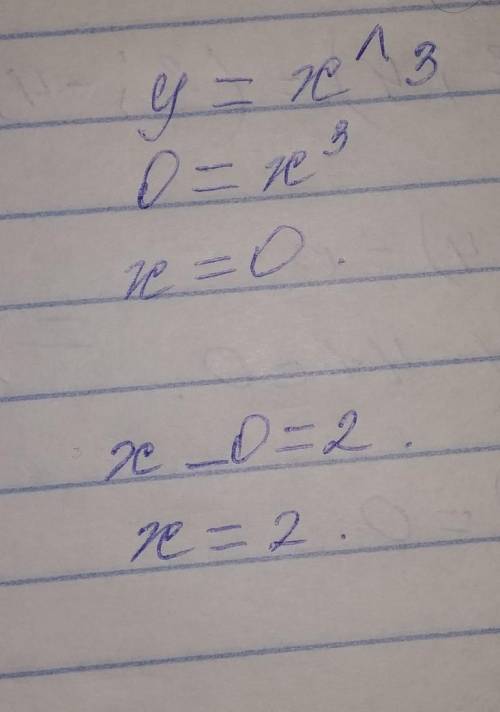 y = x^3
0 = x³
x = 0.
x - 0 = 2.
x = 2.